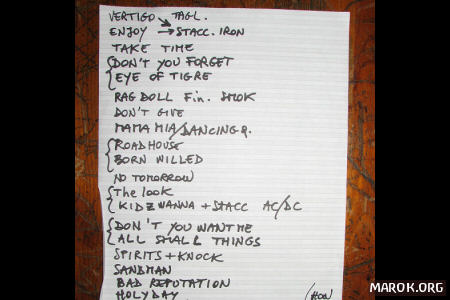 VERTIGO TAGL.
ENJOY → STACC. IRON
TAKE TIME
DON'T YOU FORGET
EYE OF TIGRE
RAG DOLL Fin. SMOK
DON'T GIVE
MAMA MIA/DANCING Q.
ROADHOUSE
BORN WILLED
NO TOMORROW
The look
KIDZ WANNA + STACC AC/DC
DON'T YOU WANT ME
ALL SMAL THINGS
SPIRITS + KNOCK
SANDMAN
BAD REPUTATION
HOLYDAY
MAROK.ORG